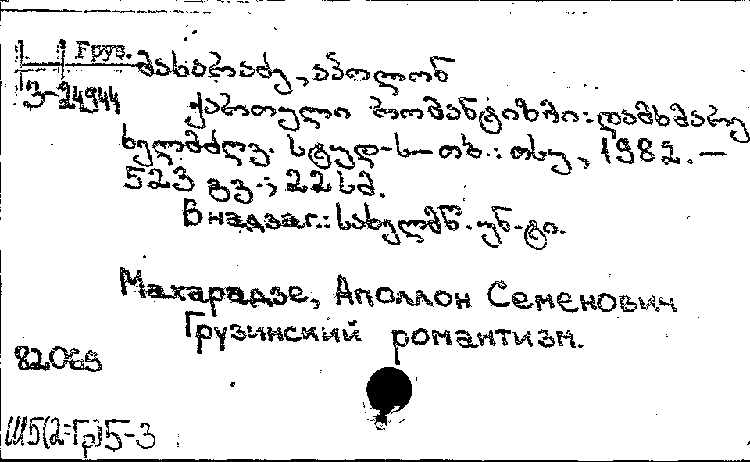 Груз.
3-24944
მახარაძე, აპოლონ
ქართული რომანტიზმი: დამხმარე
ხელმძღვ. სტუდ-ს.— თბ.: თსუ, 1982. —
523 გვ.; 22 სმ.
В надзаг.: სახელმწ. უნ-ტი.
Махарадзе, Аполлон Семенович
Грузинский романтизм.
82.069
Ш5(2=Гр)5-3